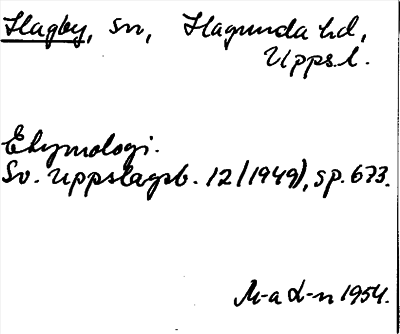 Hagby, sn, Hagunda hd,
Upps. l.
Etymologi.
Sv. Uppslagsb. 12 (1949), sp. 673.
M-a L-n 1954.